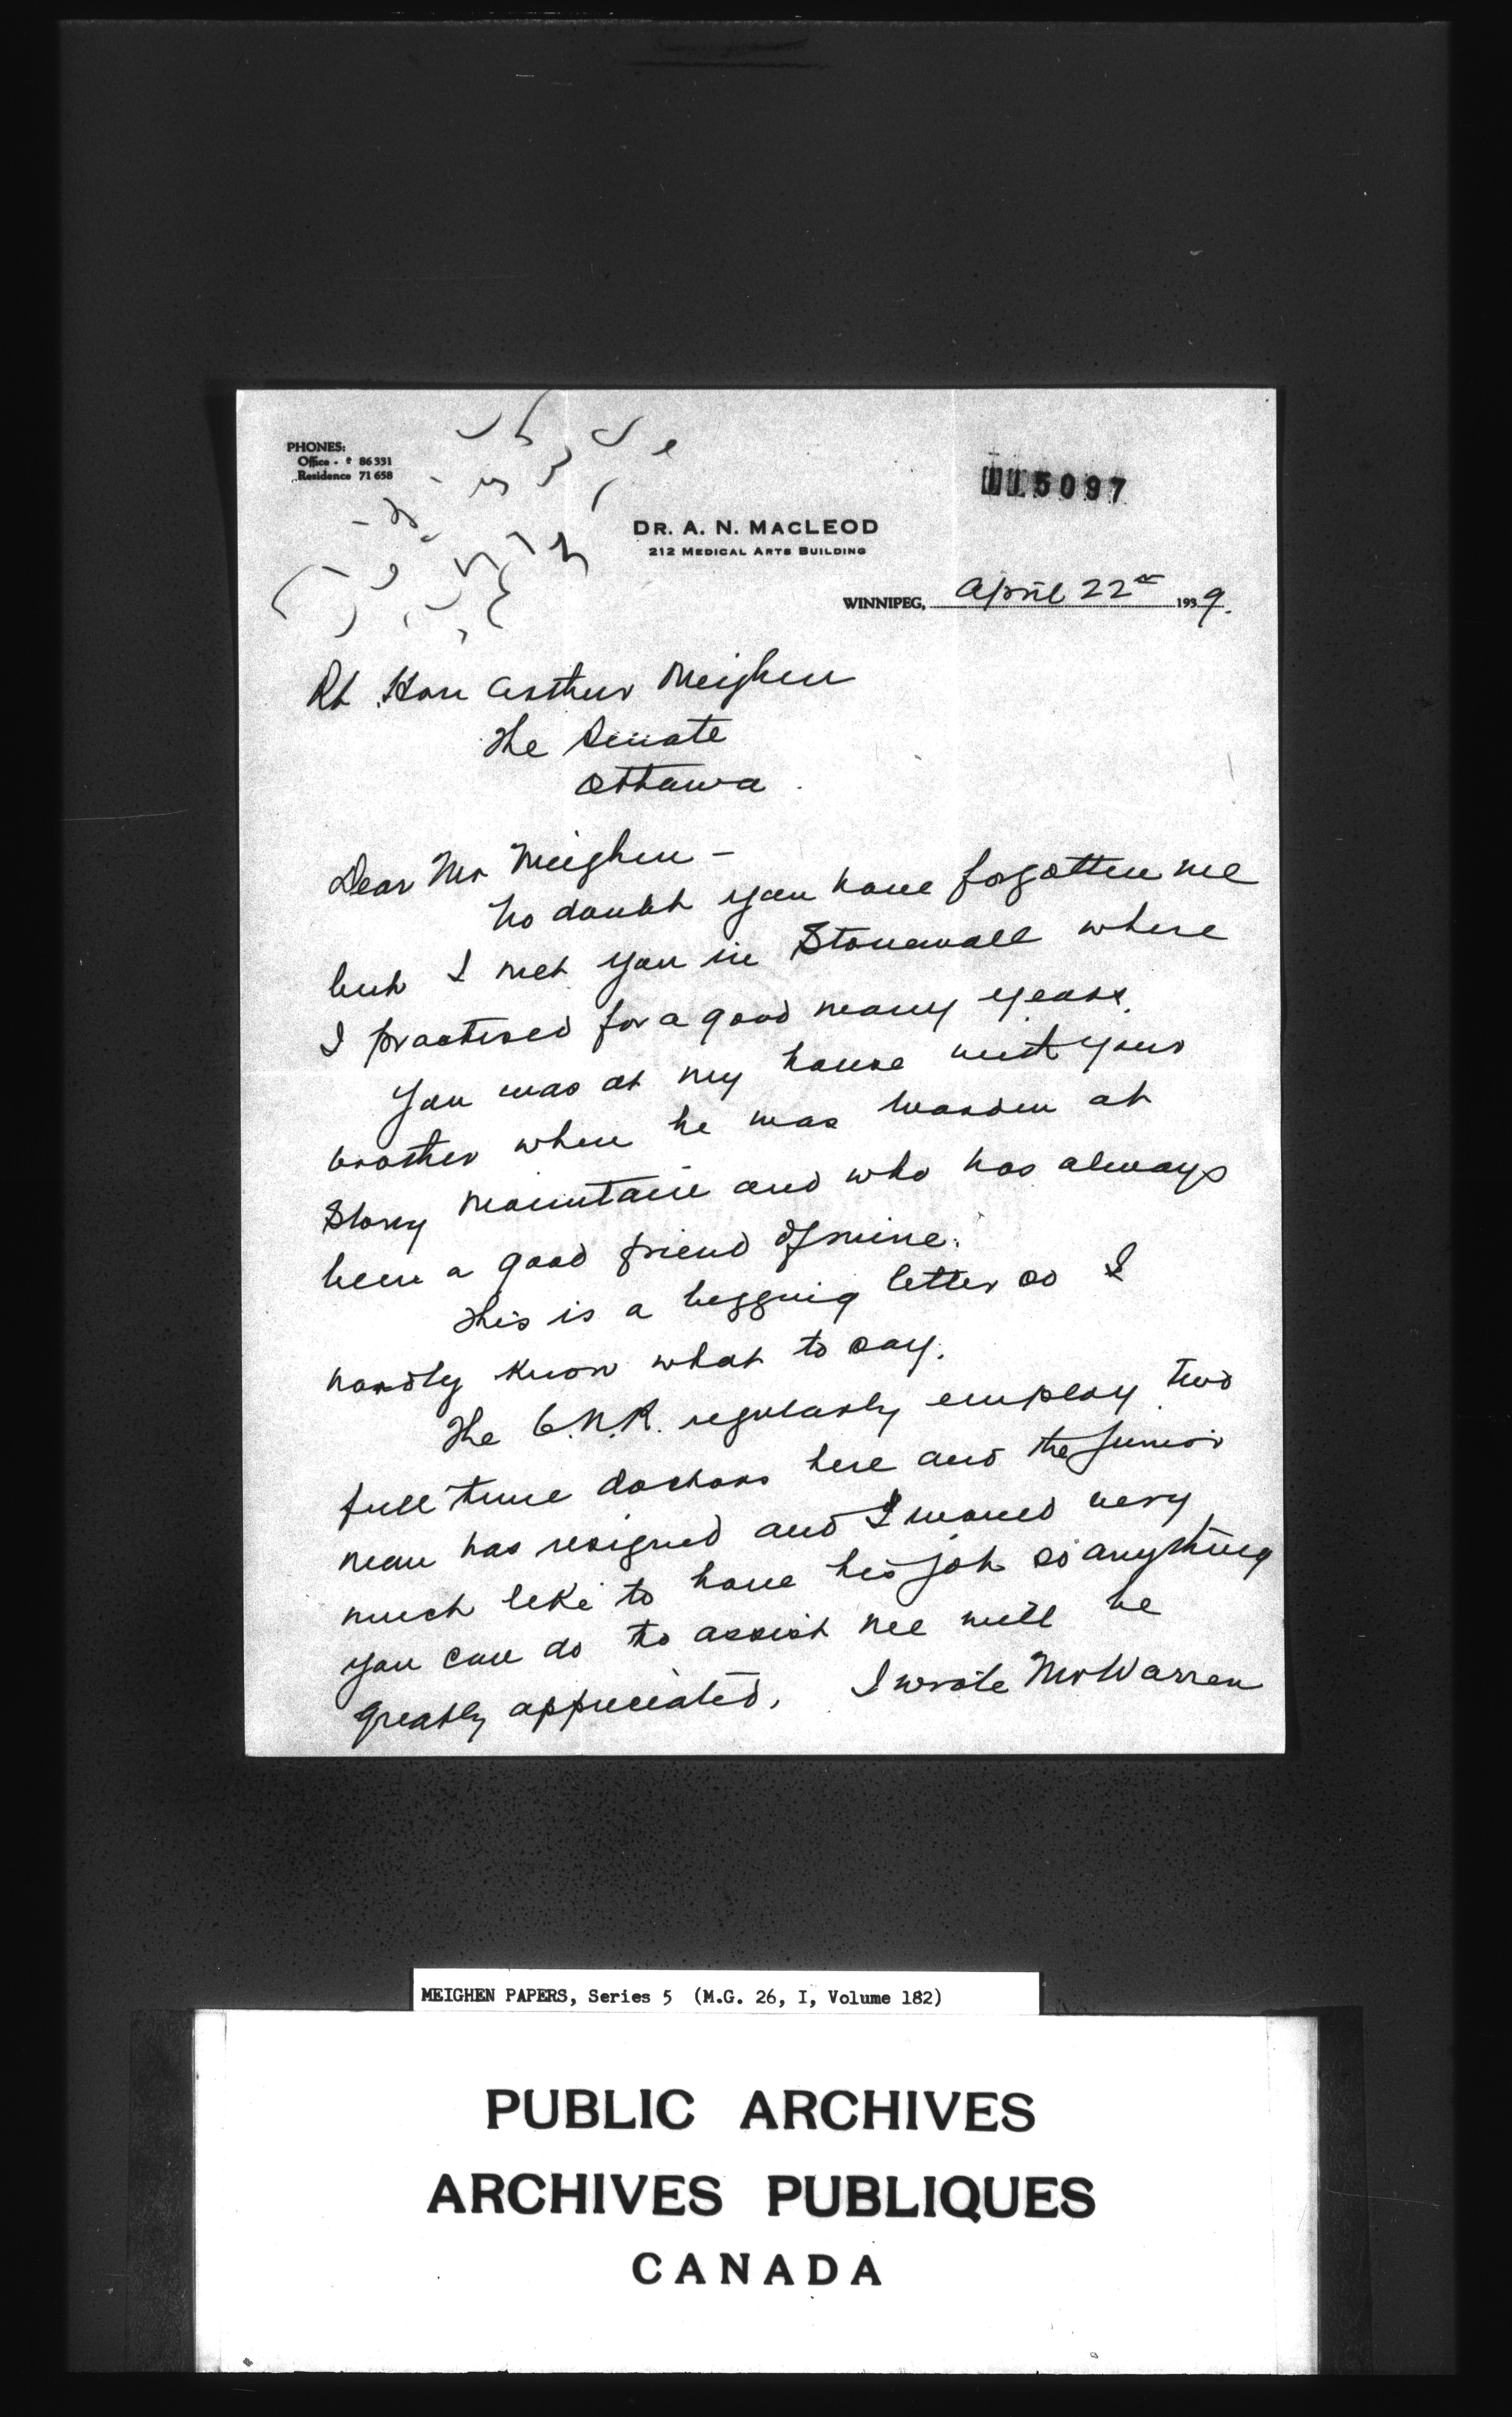 PHONES:
Office - 86 331
Residence 71 658
115097
DR. A. N. MACLEOD
212 MEDICAL ARTS BUILDING
WINNIPEG, April 22nd 1939.
Rt. Hon Arthur Meighen
The Senate
Ottawa.
Dear Mr Meighen -
No doubt you have forgotten me
but I met you in Stonewall where
I practised for a good many years.
You was at my house with your
brother when he was warden at
Stony Mountain and who has always
been a good friend of mine.
This is a begging letter so I
hardly know what to say.
The C.N.R. regularly employ two
full time doctors here and the junior
man has resigned and I would very
much like to have his job so anything
you can do to assist me will be
greatly appreciated. I wrote Mr Warren
MEIGHEN PAPERS, Series 5 (M.G. 26, I, Volume 182)
PUBLIC ARCHIVES
ARCHIVES PUBLIQUES
CANADA